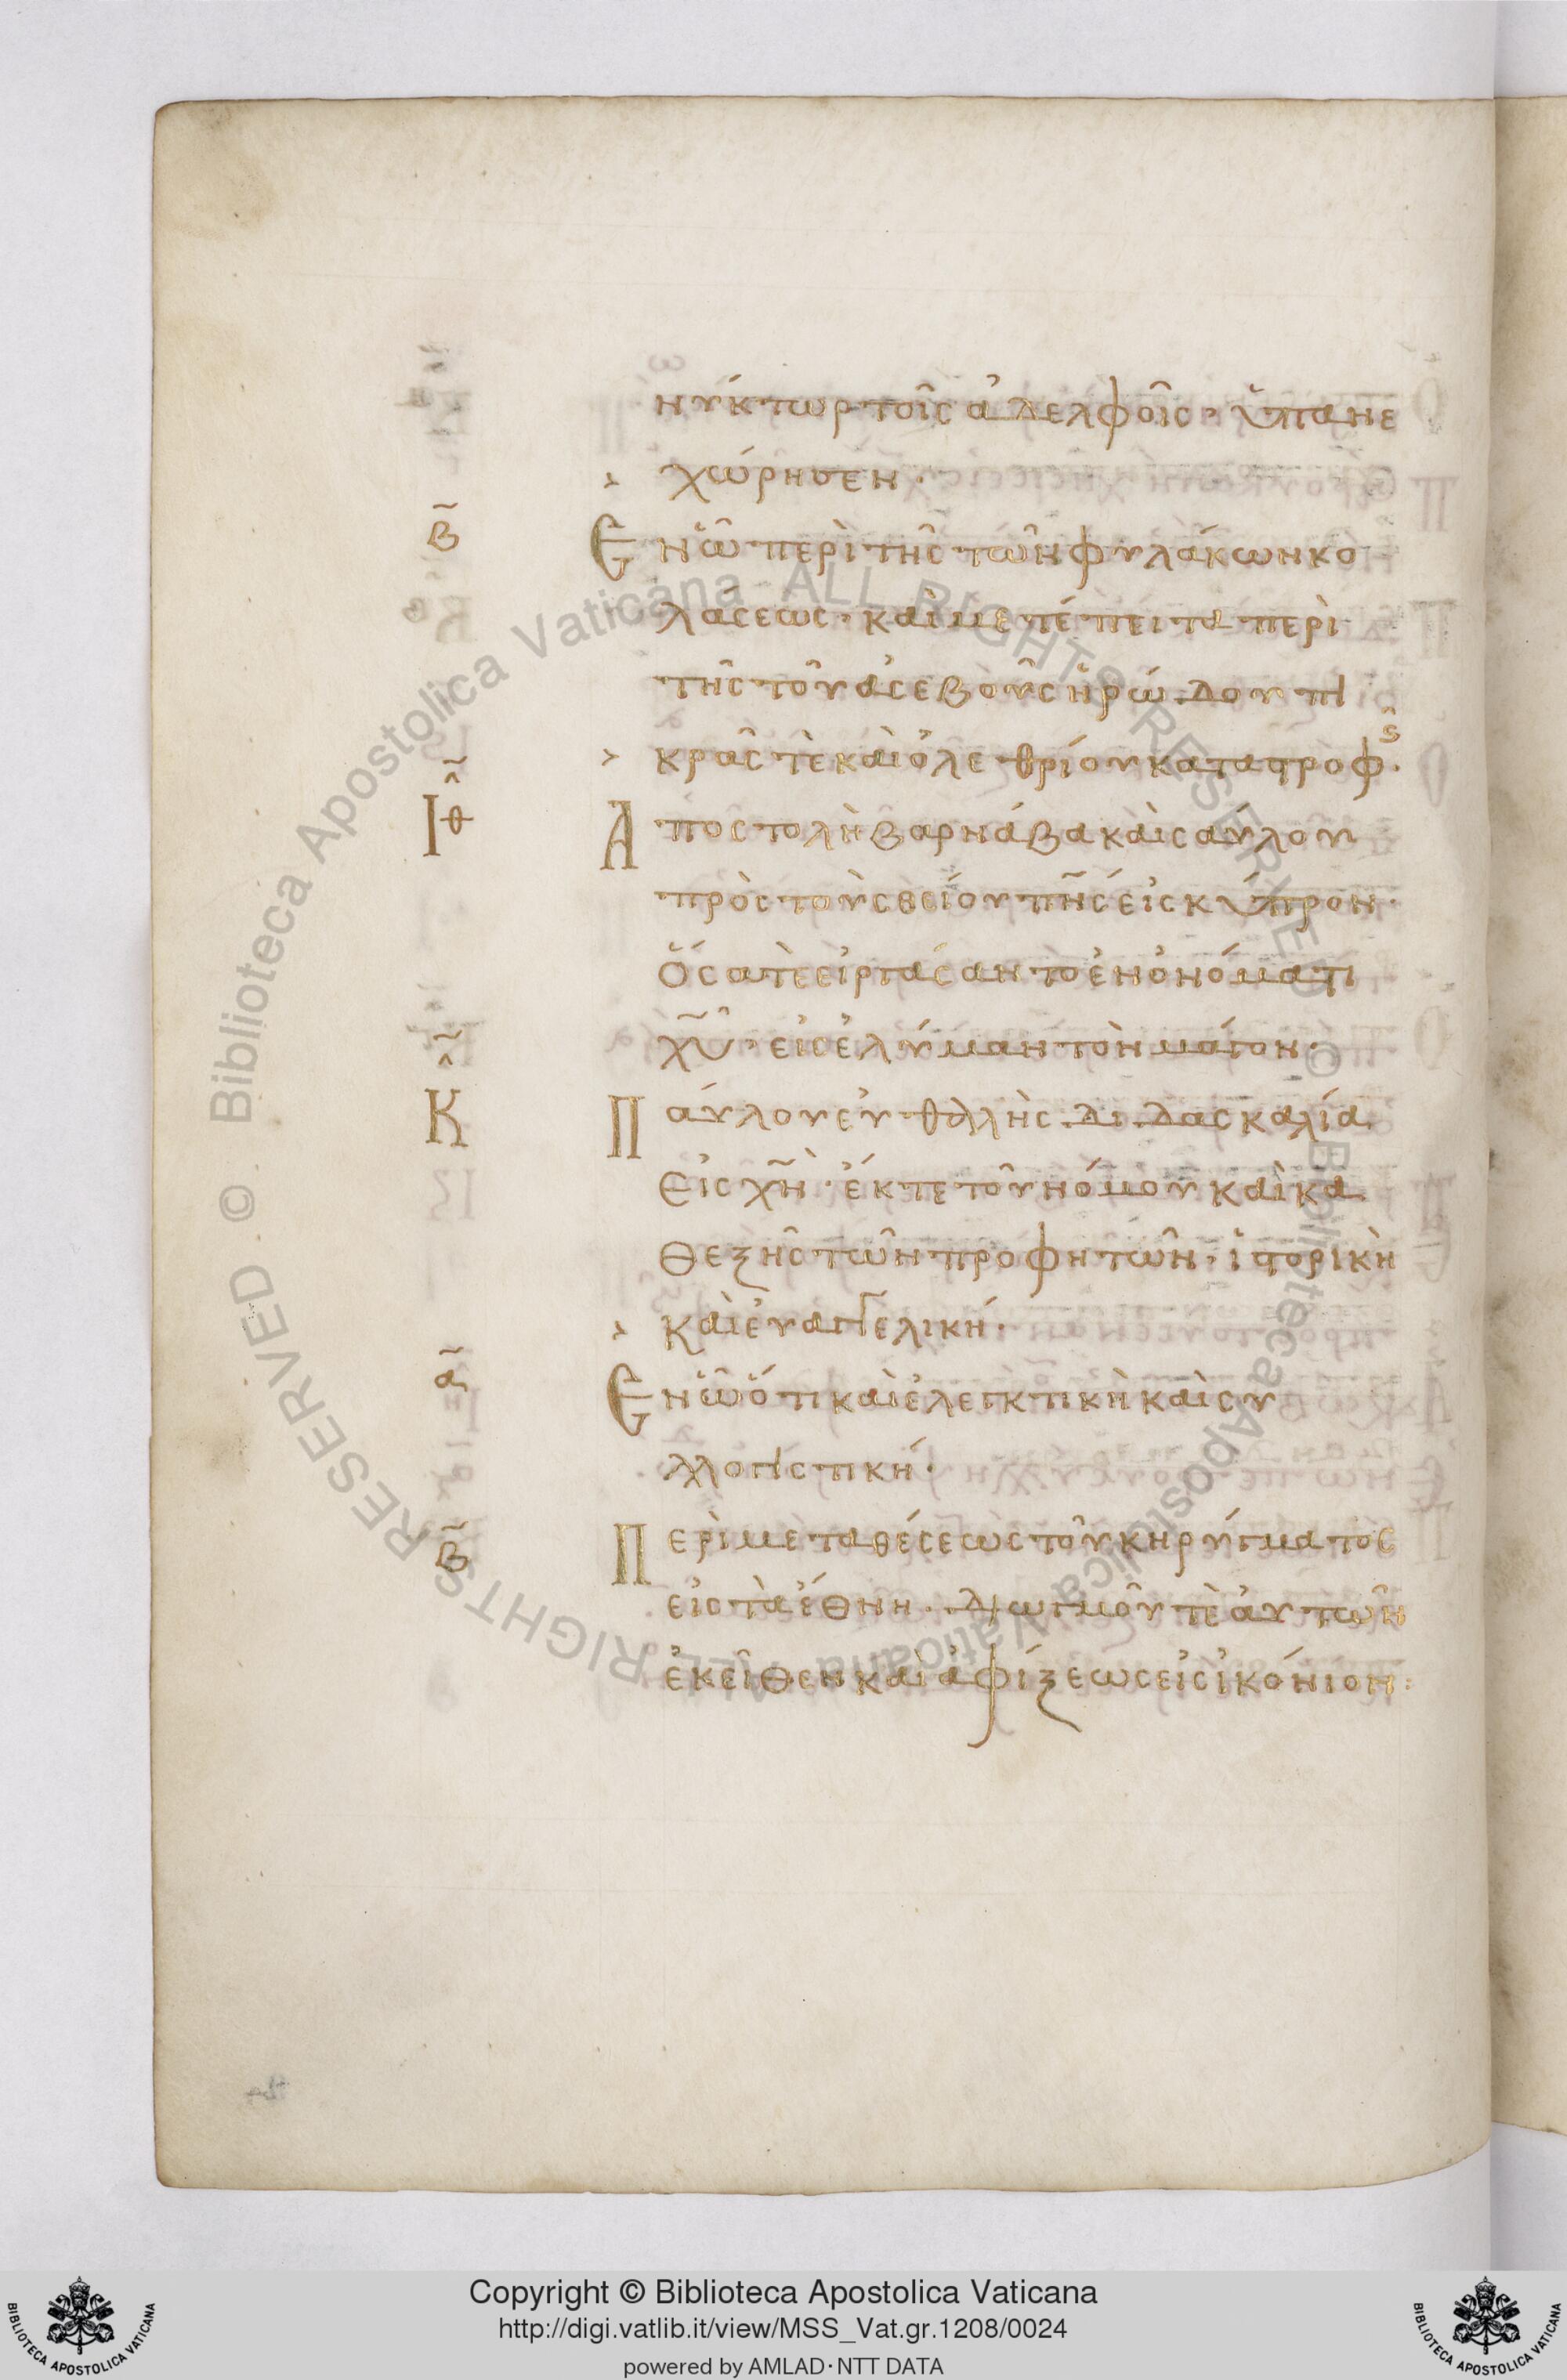 νύκτωρ τοῖς ἀδελφοῖς· ὑπανε
χώρησεν·
β̃ Ἐν ᾧ περὶ τῆς τῶν φυλάκων κο
λάσεως· καὶ μετέπειτα περὶ
τῆς τοῦ ἀσεβοῦς ἡρώδου πι
κρᾶς τὲ καὶ ὀλεθρίου καταστροφ῀ς·
ΙΘ Ἀποστολὴ βαρνάβα καὶ σαύλου
πρὸς τοῦ θείου πν̅ς εἰς κύπρον·
ὅσα τὲ εἰργάσαντο ἐν ὀνόματι
χυ̅· εἰς ἐλύμαν τὸν μάγον·
Κ Παύλου εὐθαλὴς διδασκαλία
εἰς χν̅· ἔκ τε τοῦ νόμου καὶ κα
θεξῆς τῶν προφητῶν· ἱστορικὴ
καὶ εὐαγγελική·
α̃ Ἐν ᾧ ὅτι καὶ ἐλεγκτικὴ καὶ συ
λλογιστική·
β̃ Περὶ μεταθέσεως τοῦ κηρύγματος
εἰς τὰ ἔθνη· διωγμοῦ τὲ αὐτῶν
ἐκεῖθεν καὶ ἀφίξεως εἰς ἰκόνιον:
Biblioteca Apostolica Vaticana ALL RIGHTS RESERVED ©
Biblioteca Apostolica Vaticana ALL RIGHTS RESERVED ©
Copyright © Biblioteca Apostolica Vaticana
http://digi.vatlib.it/view/MSS_Vat.gr.1208/0024
powered by AMLAD·NTT DATA
BIBLIOTECA APOSTOLICA VATICANA
BIBLIOTECA APOSTOLICA VATICANA